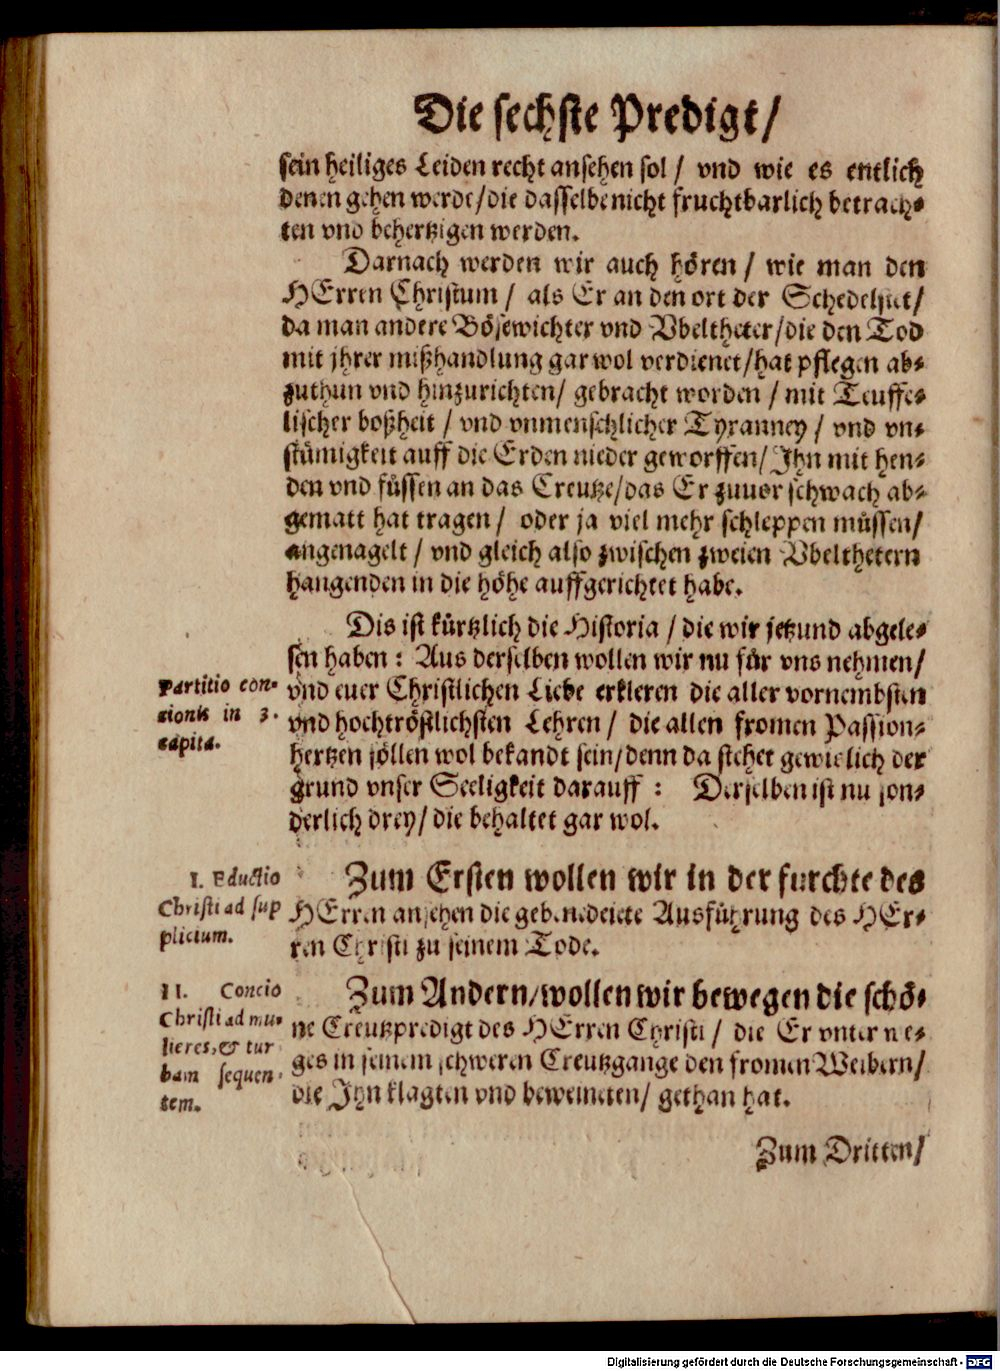 Die sechste Predigt/
sein heiliges Leiden recht ansehen sol / vnd wie es entlich
denen gehen werde/die dasselbe nicht fruchtbarlich betrach-
ten vnd behertzigen werden.
Darnach werden wir auch hören / wie man den
HErren Christum / als Er an den ort der Schedelstet/
da man andere Bösewichter vnd Vbeltheter/die den Tod
mit jhrer mißhandlung gar wol verdienet/hat pflegen ab-
zuthun vnd hinzurichten/ gebracht worden / mit Teuffe-
lischer boßheit / vnd vnmenschlicher Tyranney / vnd vn-
stümigkeit auff die Erden nieder geworffen/ Jhn mit hen-
den vnd füssen an das Creutze/das Er zuuor schwach ab-
gematt hat tragen / oder ja viel mehr schleppen müssen/
angenagelt / vnd gleich also zwischen zweien Vbelthetern
hangenden in die höhe auffgerichtet habe.
Dis ist kürtzlich die Historia / die wir jetzund abgele-
sen haben : Aus derselben wollen wir nu für vns nehmen/
vnd euer Christlichen Liebe erkleren die aller vornembsten
vnd hochtröstlichsten Lehren / die allen fromen Passion-
hertzen söllen wol bekandt sein/denn da stehet gewislich der
grund vnser Seeligkeit darauff : Derselben ist nu son-
derlich drey/ die behaltet gar wol.
Partitio con-
cionis in 3.
capita.
Zum Ersten wollen wir in der furchte des
HErren ansehen die gebenedeiete Ausführung des HEr-
ren Christi zu seinem Tode.
I. Eductio
Christi ad sup
plicium.
Zum Andern/wollen wir bewegen die schö-
ne Creutzpredigt des HErren Christi / die Er vnter we-
ges in seinem schweren Creutzgange den fromen Weibern/
die Jhn klagten vnd beweineten/ gethan hat.
II. Concio
Christi ad mu-
lieres, & tur
bam sequen-
tem.
Zum Dritten/
Digitalisierung gefördert durch die Deutsche Forschungsgemeinschaft - DFG